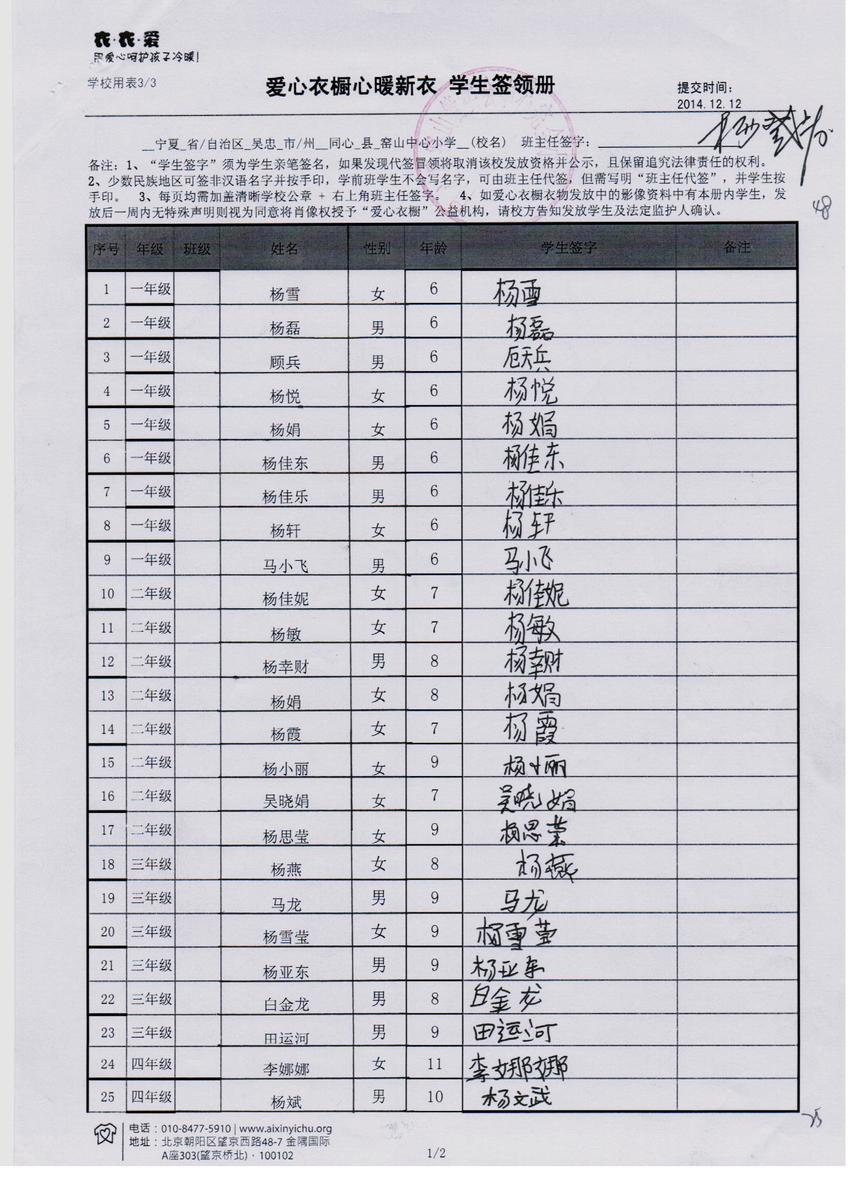 衣·衣·爱
用爱心呵护孩子冷暖!
学校用表3/3
爱心衣橱心暖新衣 学生签领册
提交时间:
2014.12.12
__宁夏_省/自治区_吴忠_市/州__同心_县_窑山中心小学__(校名) 班主任签字:
备注:1、“学生签字”须为学生亲笔签名,如果发现代签冒领将取消该校发放资格并公示,且保留追究法律责任的权利。
2、少数民族地区可签非汉语名字并按手印,学前班学生不会写名字,可由班主任代签,但需写明“班主任代签”,并学生按
手印。 3、每页均需加盖清晰学校公章 + 右上角班主任签字。 4、如爱心衣橱衣物发放中的影像资料中有本册内学生,发
放后一周内无特殊声明则视为同意将肖像权授予“爱心衣橱”公益机构,请校方告知发放学生及法定监护人确认。
48
序号 年级 班级 姓名 性别 年龄 学生签字 备注
1 一年级 杨雪 女 6 杨雪
2 一年级 杨磊 男 6 杨磊
3 一年级 顾兵 男 6 兵
4 一年级 杨悦 女 6 杨悦
5 一年级 杨娟 女 6 杨娟
6 一年级 杨佳东 男 6 杨佳东
7 一年级 杨佳乐 男 6 杨佳乐
8 一年级 杨轩 女 6 杨轩
9 一年级 马小飞 男 6 马小飞
10 二年级 杨佳妮 女 7 杨佳妮
11 二年级 杨敏 女 7 杨敏
12 二年级 杨幸财 男 8 杨幸财
13 二年级 杨娟 女 8 杨娟
14 二年级 杨霞 女 7 杨霞
15 二年级 杨小丽 女 9 杨小丽
16 二年级 吴晓娟 女 7 吴晓娟
17 二年级 杨思莹 女 9 杨思莹
18 三年级 杨燕 女 8 杨燕
19 三年级 马龙 男 9 马龙
20 三年级 杨雪莹 女 9 杨雪莹
21 三年级 杨亚东 男 9 杨亚东
22 三年级 白金龙 男 8 白金龙
23 三年级 田运河 男 9 田运河
24 四年级 李娜娜 女 11 李娜娜
25 四年级 杨斌 男 10 杨文武
电话:010-8477-5910 | www.aixinyichu.org
地址:北京朝阳区望京西路48-7 金隅国际
A座303(望京桥北)·100102
1/2
25